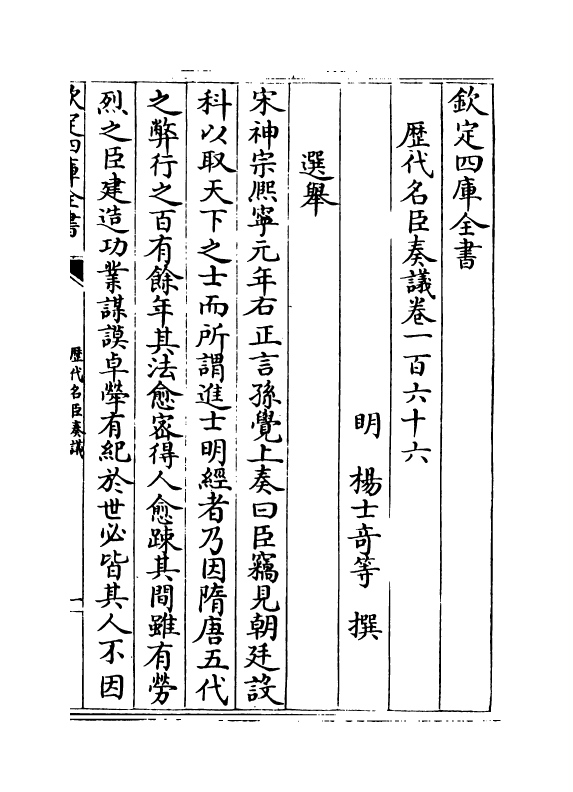 欽定四庫全書
歴代名臣奏議卷一百六十六
明 楊士竒等 撰
選舉
宋神宗熈寧元年右正言孫覺上奏曰臣竊見朝廷設
科以取天下之士而所謂進士明經者乃因隋唐五代
之弊行之百有餘年其法愈宻得人愈踈其間雖有勞
烈之臣建造功業謀謨卓犖有紀於世必皆其人不因
欽定四庫全書
歴代名臣奏議
一